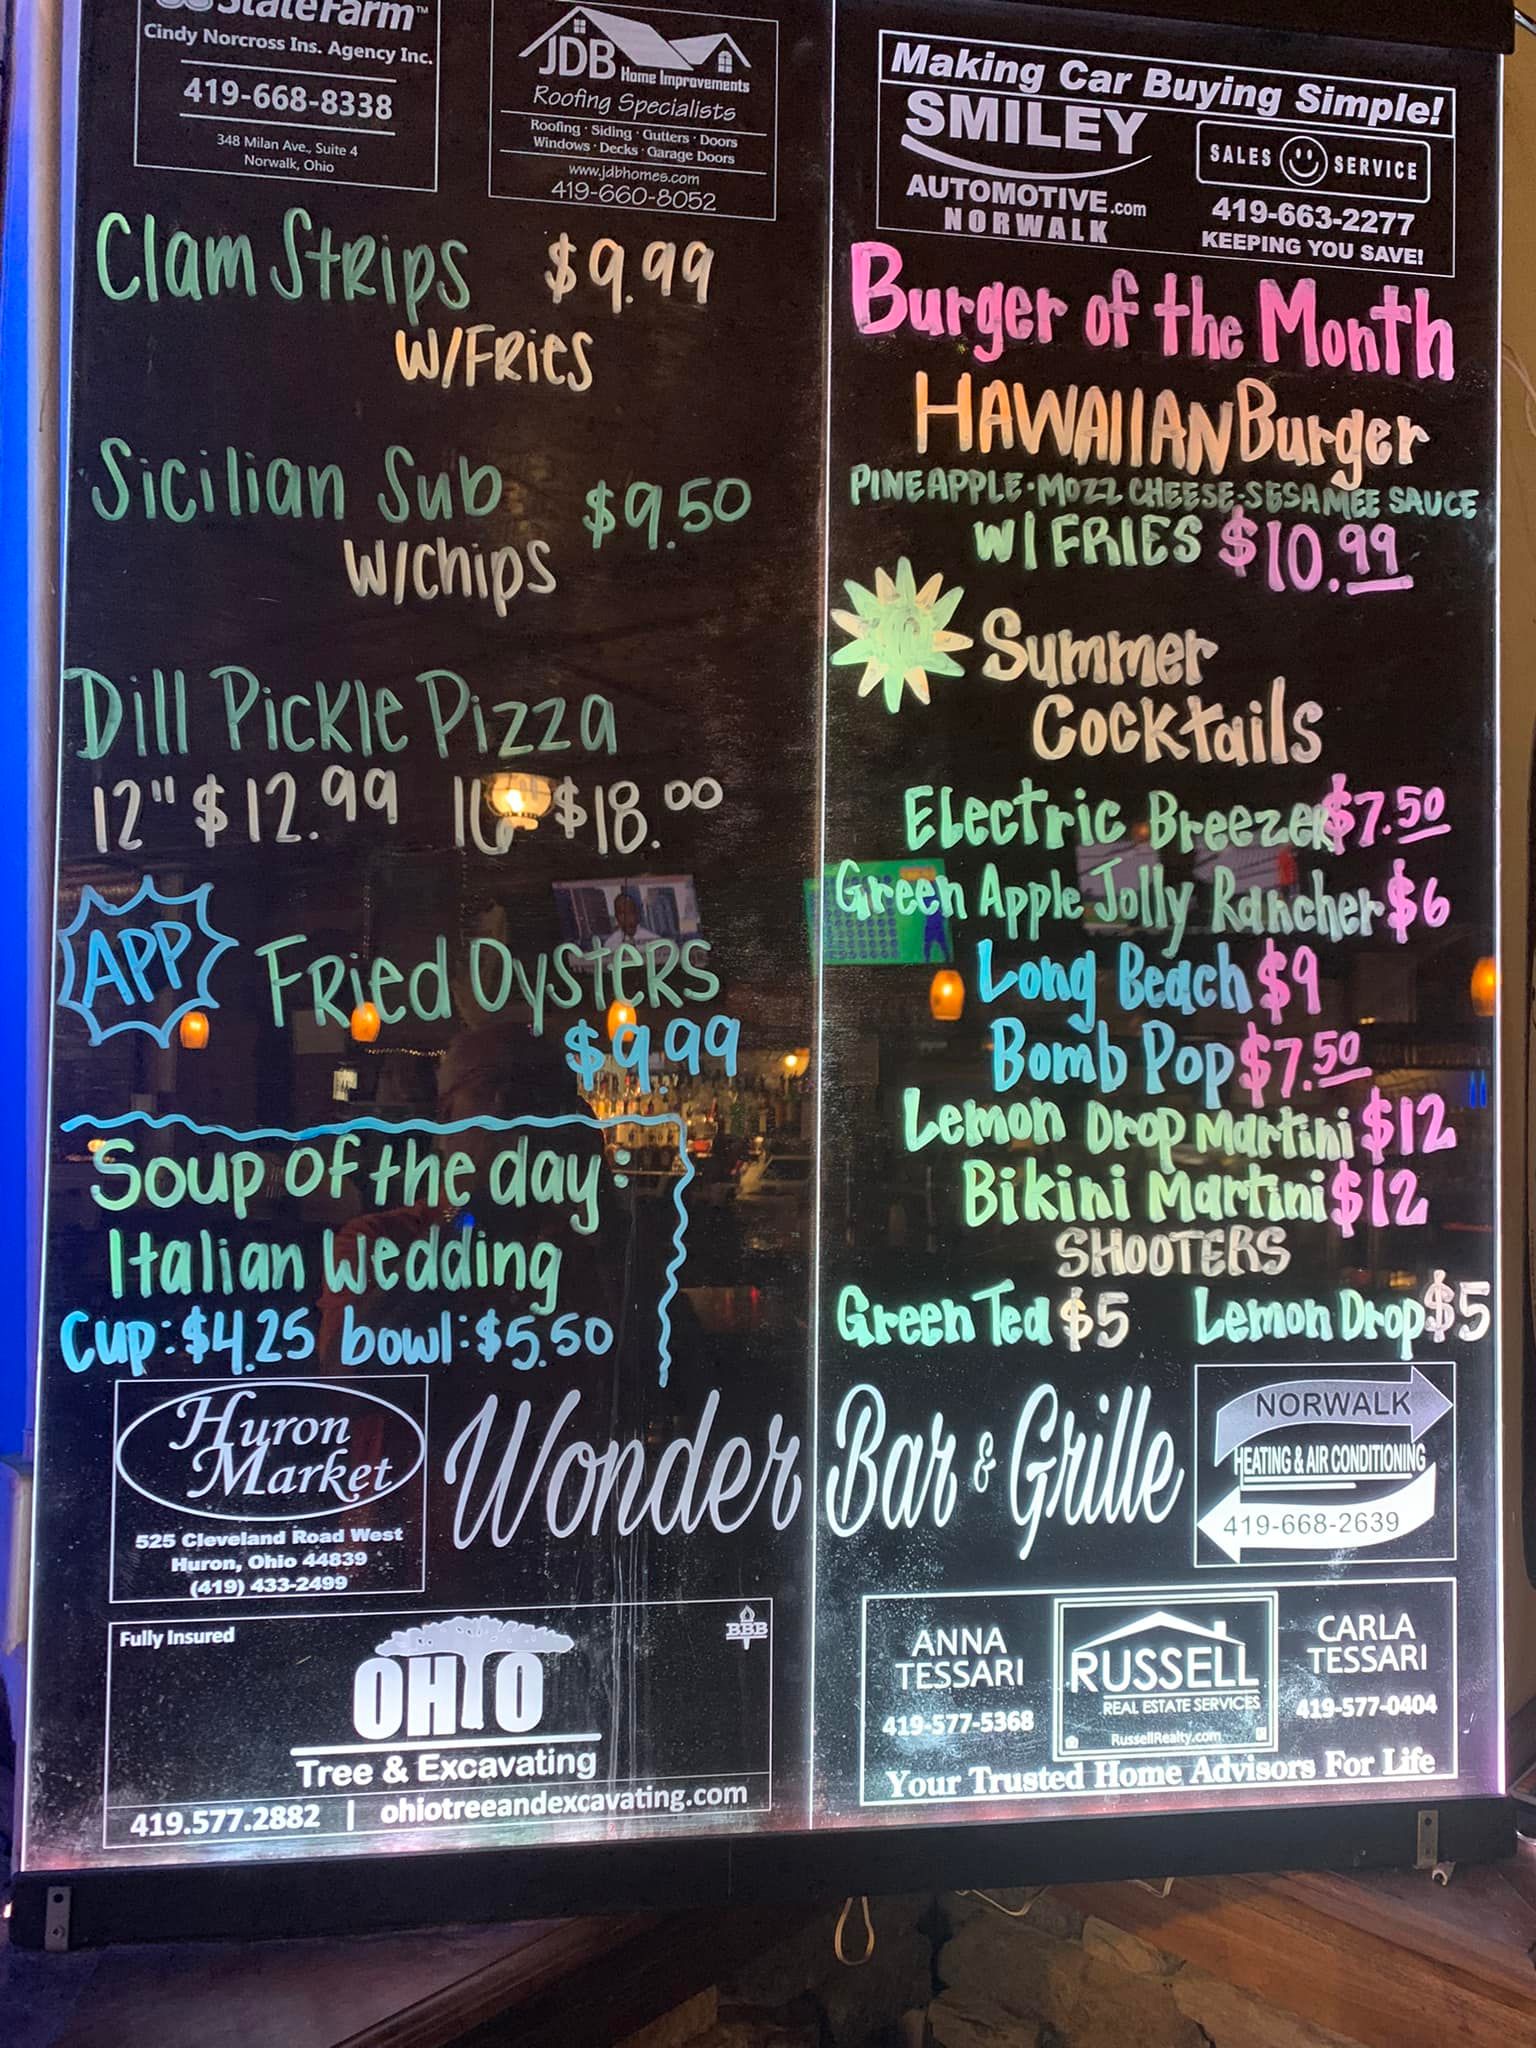 StateFarm™
Cindy Norcross Ins. Agency Inc.
419-668-8338
348 Milan Ave., Suite 4
Norwalk, Ohio
JDB Home Improvements
Roofing Specialists
Roofing · Siding · Gutters · Doors
Windows · Decks · Garage Doors
www.jdbhomes.com
419-660-8052
Clam Strips $9.99
W/Fries
Sicilian Sub $9.50
W/Chips
Dill Pickle Pizza
12" $12.99 16 $18.00
APP
Fried Oysters
$9.99
Soup of the day:
Italian Wedding
Cup: $4.25 bowl: $5.50
Making Car Buying Simple!
SMILEY
AUTOMOTIVE.com
NORWALK
SALES SERVICE
419-663-2277
KEEPING YOU SAVE!
Burger of the Month
HAWAIIAN Burger
PINEAPPLE · MOZZ CHEESE · SESAMEE SAUCE
W/ FRIES $10.99
Summer
Cocktails
Electric Breezer $7.50
Green Apple Jolly Rancher $6
Long Beach $9
Bomb Pop $7.50
Lemon Drop Martini $12
Bikini Martini $12
SHOOTERS
Green Tea $5 Lemon Drop $5
Huron
Market
525 Cleveland Road West
Huron, Ohio 44839
(419) 433-2499
Wonder Bar & Grille
NORWALK
HEATING & AIR CONDITIONING
419-668-2639
Fully Insured
BBB
OHIO
Tree & Excavating
419.577.2882 | ohiotreeandexcavating.com
ANNA
TESSARI
419-577-5368
RUSSELL
REAL ESTATE SERVICES
RussellRealty.com
CARLA
TESSARI
419-577-0404
Your Trusted Home Advisors For Life